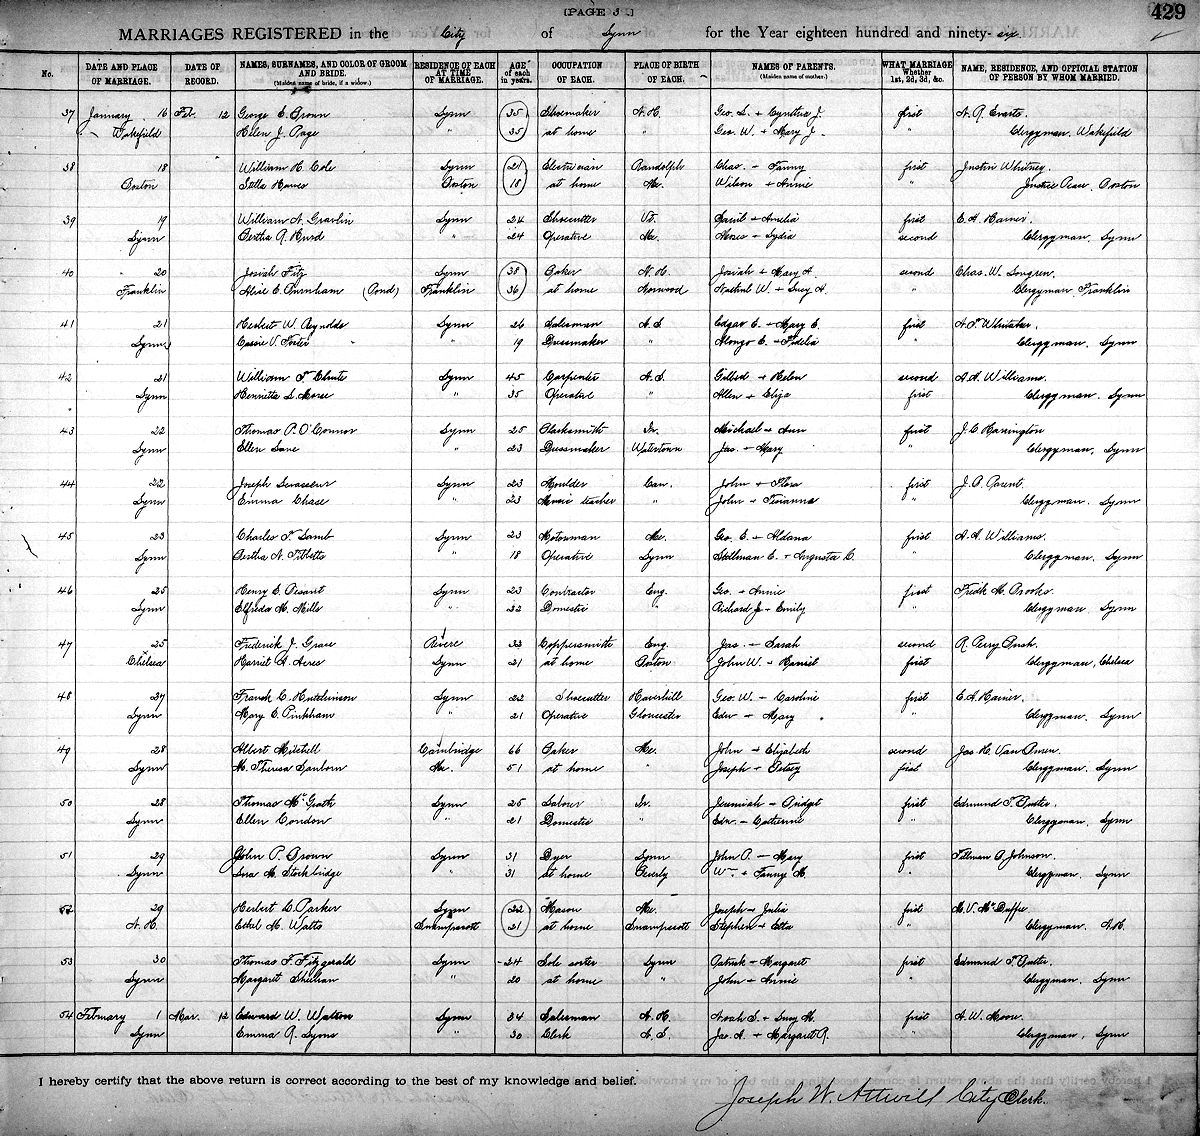 [PAGE 3.]
429
MARRIAGES REGISTERED in the City of Lynn for the Year eighteen hundred and ninety-six
No. DATE AND PLACE OF MARRIAGE. DATE OF RECORD. NAMES, SURNAMES, AND COLOR OF GROOM AND BRIDE. (Maiden name of bride, if a widow.) RESIDENCE OF EACH AT TIME OF MARRIAGE. AGE of each in years. OCCUPATION OF EACH. PLACE OF BIRTH OF EACH. NAMES OF PARENTS. (Maiden name of mother.) WHAT MARRIAGE Whether 1st, 2d, 3d, &c. NAME, RESIDENCE, AND OFFICIAL STATION OF PERSON BY WHOM MARRIED.
37 January 16 Feb. 12 George E. Brown Lynn 35 Shoemaker N. H. Geo. L. + Cynthia J. first
Wakefield Helen J. Page " 35 at home " Geo. W. + Mary J. " Clergyman. Wakefield
38 18 William H. Cole Lynn 21 Electrician Randolph Chas. + Fanny first Justin Whitney.
Boston Stella Hawes Boston 18 at home Me. Wilson + Annie " Justice Peace, Boston
39 19 William N. Gravlin Lynn 24 Shoecutter Vt. + Amelia first
Lynn Bertha A. Hurd " 24 Operative Me. Moses + Lydia second Clergyman. Lynn
40 20 Josiah Fitz Lynn 38 Baker N. H. Josiah + Mary A. second Chas. W. Longren.
Franklin Alice E. Burnham (Pond) Franklin 36 at home Norwood W. + Lucy A. " Clergyman. Franklin
41 21 Herbert W. Reynolds Lynn 26 Salesman N. S. Edgar E. + Mary E. first Whitaker.
Lynn Cassie V. Foster " 19 Dressmaker " Alonzo E. + Fidelia " Clergyman. Lynn
42 21 William F. Lynn 45 Carpenter N. S. Gilbert + Helen second A. A. Williams.
Lynn Henrietta L. Morse " 35 Operative " Allen + Eliza first Clergyman. Lynn
43 22 Thomas P. O'Connor Lynn 25 Blacksmith Ir. Michael + Ann first J. C. Harrington
Lynn Ellen Lane " 23 Dressmaker Watertown Jas. + Mary " Clergyman. Lynn
44 22 Joseph Levasseur Lynn 23 Moulder Can. John + Flora first J. B. Parent.
Lynn Emma Chase " 23 Music teacher " John + " Clergyman. Lynn
45 23 Charles F. Lamb Lynn 23 Motorman Me. Geo. E. + Aldana first A. A. Williams.
Lynn Bertha N. Tibbetts " 18 Operative Lynn Stillman E. + Augusta C. " Clergyman. Lynn
46 25 Henry E. Lynn 23 Contractor Eng. Geo. + Annie first Fredk M. Brooks.
Lynn Elfreda M. Mills " 32 Domestic " Richard J. + Emily " Clergyman Lynn
47 25 Frederick J. Grace Revere 33 Coppersmith Eng. Jas. + Sarah second R. Perry Bush.
Chelsea Harriet A. Ayres Lynn 21 at home Boston John W. + Harriet first Clergyman, Chelsea
48 27 Frank C. Hutchinson Lynn 22 Shoecutter Haverhill Geo. W. + Caroline first
Lynn Mary E. Pinkham " 21 Operative Gloucester Edw + Mary " Clergyman. Lynn
49 28 Albert Mitchell Cambridge 66 Baker Me. John + Elizabeth second Jas. H. Van Buren.
Lynn M. Theresa Sanborn Me. 51 at home " Joseph + Betsey first Clergyman. Lynn
50 28 Thomas McGrath Lynn 25 Labour Ir. Jeremiah + Bridget first Edmund T.
Lynn Ellen Condon " 21 Domestic " Edw. + Catherine " Clergyman. Lynn
51 29 John P. Brown Lynn 31 Dyer Lynn John P. + Mary first Tillman B. Johnson.
Lynn Lura M. Stockbridge " 31 at home Beverly Wm. + Fanny M. " Clergyman. Lynn
52 29 Herbert D. Parker Lynn 22 Mason Me. Joseph + Julia first M. V. McDuffee
N. H. Ethel M. Watts Swampscott 21 at home Swampscott Stephen + Etta " Clergyman. N. H.
53 30 Thomas F. Fitzgerald Lynn 24 Sole sorter Lynn Patrick + Margaret first Edmund T.
Lynn Margaret Shelian " 20 at home " John + Annie " Clergyman. Lynn
54 February 1 Mar. 12 Edward W. Walton Lynn 34 Salesman N. H. Noah S. + Lucy M. first A. W. Moore.
Lynn Emma R. Lyons " 30 Clerk N. S. Jas. A. + Margaret R. " Clergyman, Lynn
I hereby certify that the above return is correct according to the best of my knowledge and belief.
Joseph W. Attwill City Clerk.